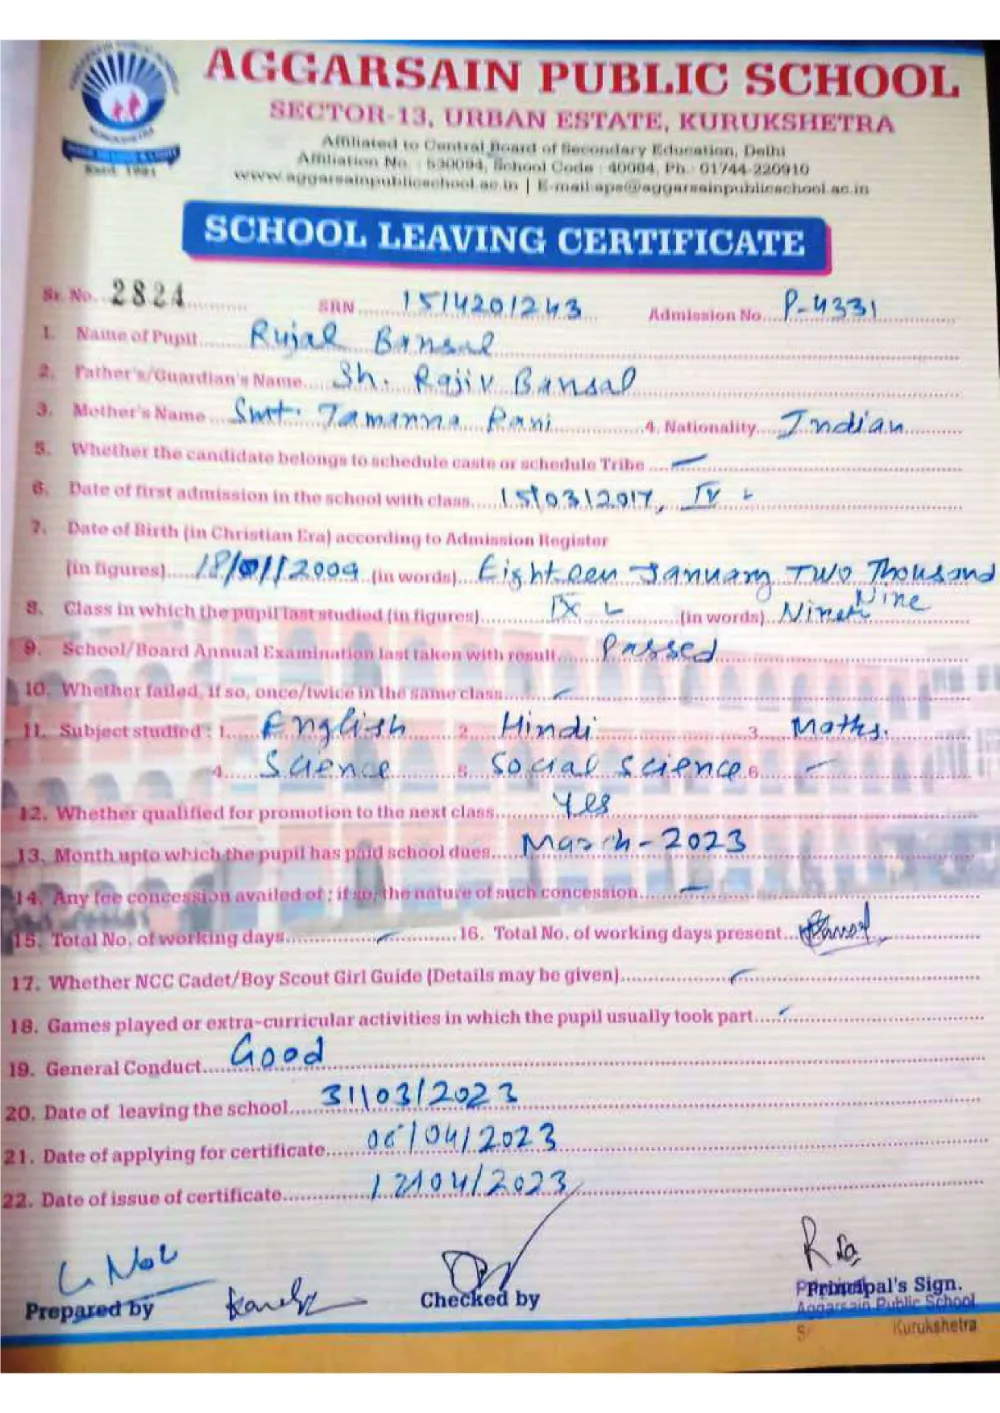 AGGARSAIN PUBLIC SCHOOL
SECTOR-13, URBAN ESTATE, KURUKSHETRA
Affiliated to Central Board of Secondary Education, Delhi
Affiliation No. : 530094, School Code : 40084, Ph.: 01744-220910
www.aggarsainpublicschool.ac.in | E-mail aps@aggarsainpublicschool.ac.in
SCHOOL LEAVING CERTIFICATE
Sr. No. 2824 SRN 1514201243 Admission No. P-4331
1. Name of Pupil Rujal Bansal
2. Father's/Guardian's Name Sh. Rajiv Bansal
3. Mother's Name Smt. Tamanna Rani 4. Nationality Indian
5. Whether the candidate belongs to schedule caste or schedule Tribe –
6. Date of first admission in the school with class 15/03/2017, IV
7. Date of Birth (in Christian Era) according to Admission Register
(in figures) 18/01/2009 (in words) Eighteen January Two Thousand Nine
8. Class in which the pupil last studied (in figures) IX (in words) Nineth
9. School/Board Annual Examination last taken with result Passed
10. Whether failed, if so, once/twice in the same class –
11. Subject studied : 1. English 2. Hindi 3. Maths.
4. Science 5. Social Science 6 –
12. Whether qualified for promotion to the next class Yes
13. Month upto which the pupil has paid school dues March-2023
14. Any fee concession availed of ; if so, the nature of such concession –
15. Total No. of working days – 16. Total No. of working days present
17. Whether NCC Cadet/Boy Scout Girl Guide (Details may be given) –
18. Games played or extra-curricular activities in which the pupil usually took part –
19. General Conduct Good
20. Date of leaving the school 31/03/2023
21. Date of applying for certificate 06/04/2023
22. Date of issue of certificate 12/04/2023
Prepared by Checked by Principal's Sign.
Aggarsain Public School
Kurukshetra